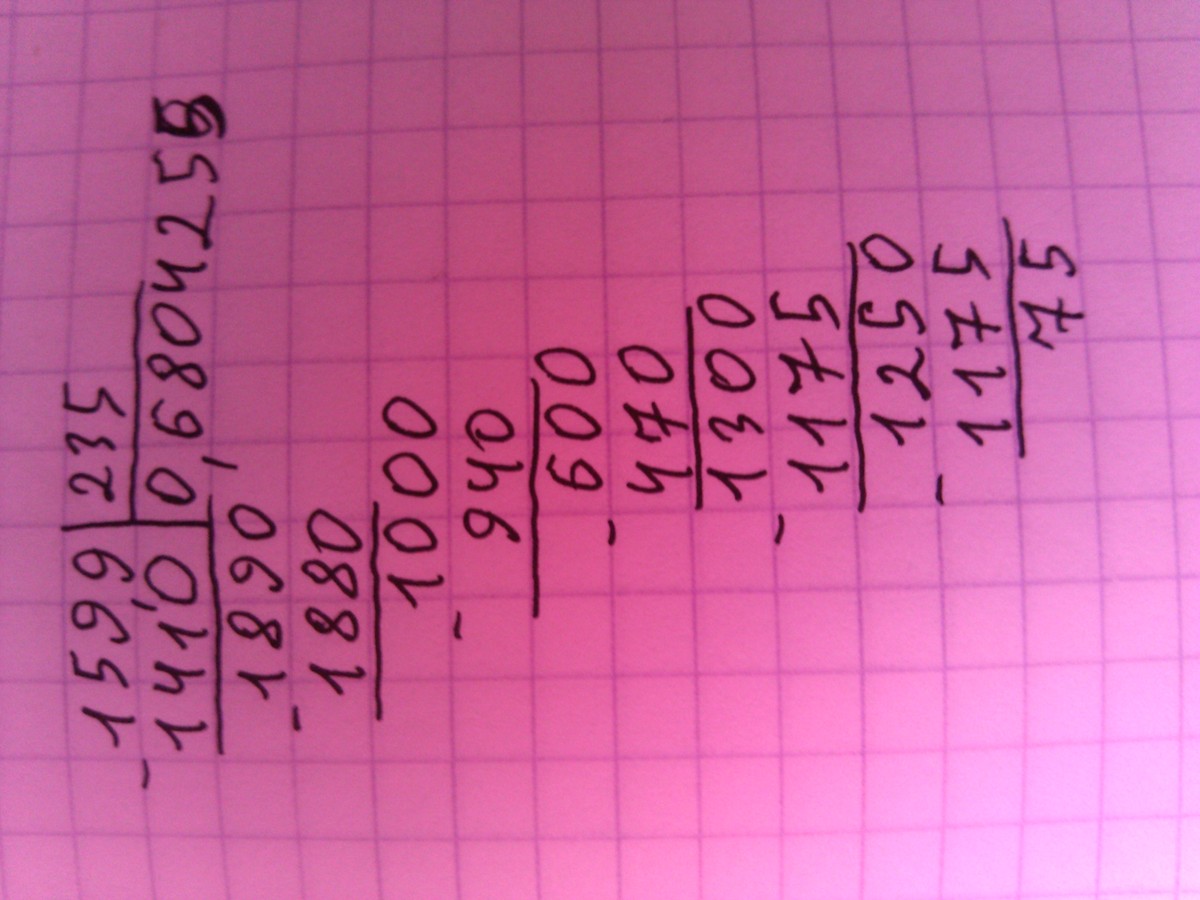 - 159,9 | 235
1410 | 0,6804255
- 1890
1880
- 1000
940
- 600
470
- 1300
1175
- 1250
1175
75